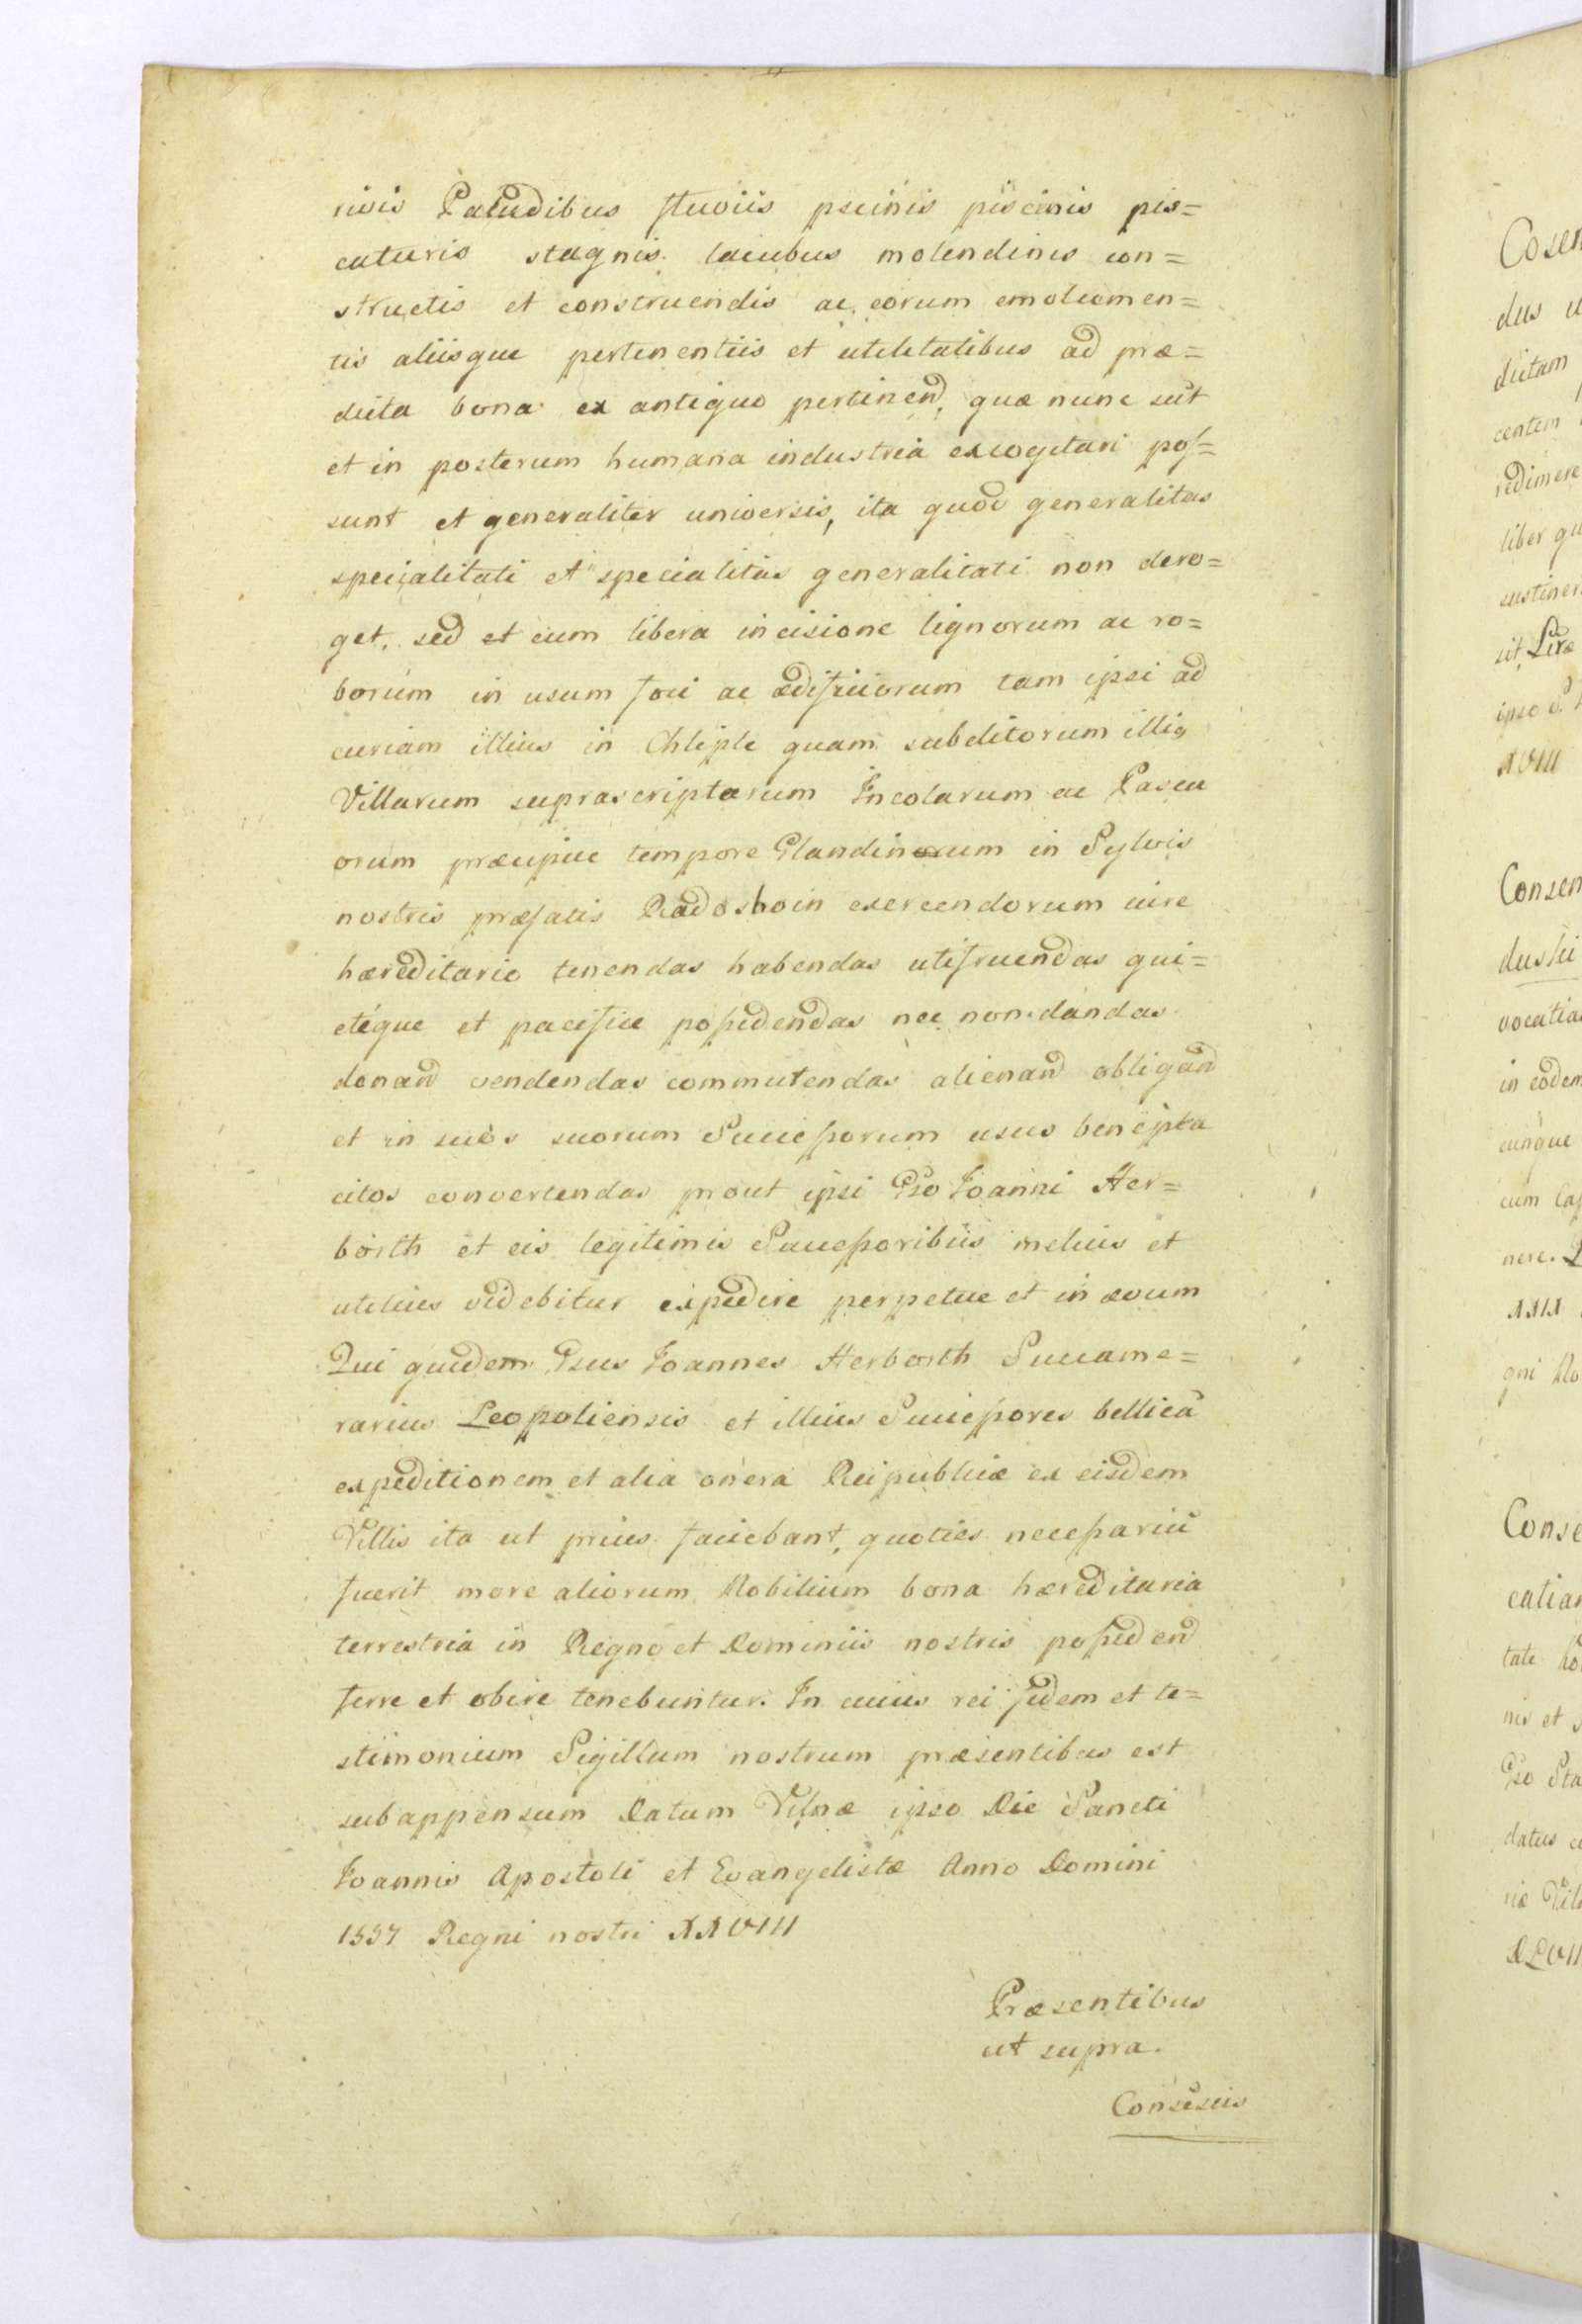 rivis Paludibus fluviis pscinis piscinis pis=
caturis stagnis lacubus molendinis con=
structis et construendis ac eorum emolumen=
tis aliisque pertinentiis et utilitatibus ad præ=
dicta bona ex antiquo pertinend, quæ nunc sūt
et in posterum humana industria excogitari pos=
sunt et generaliter universis, ita quod generalitas
specialitati et specialitas generalitati non dero=
get, sed et cum libera incisione lignorum ac ro=
borum in usum foci ac ædificiorum tam ipsi ad
curiam illius in Chliple quam subditorum illig
Villarum suprascriptarum Incolarum ac Pascu
orum præcipue tempore Glandinorum in Sylvis
nostris præfatis Radoshoin exercendorum iure
hæreditario tenendas habendas utifruendas qui=
etéque et pacifice possidendas nec non dandas
donand vendendas commutendas alienand obligand
et in suos suorum Successorum usus beneplá
citos convertendas prout ipsi Gso Joanni Her=
borth et eis legitimis Successoribus melius et
utilius videbitur expedire perpetue et in ævum
Qui quidem Gsus Joannes Herborth Succame=
rarius Leopoliensis et illius Successores bellicā
expeditionem et alia onera Reipublicæ ex eisdem
Villis ita ut prius faciebant, quoties necessariū
fuerit more aliorum Nobilium bona hæreditaria
terrestria in Regno et Dominiis nostris possidend
ferre et obire tenebuntur. In cuius rei fidem et te=
stimonium Sigillum nostrum præsentibus est
subappensum Datum Vilnæ ipso Die Sancti
Joannis Apostoli et Evangelistæ Anno Domini
1557 Regni nostri XXVIII
Præsentibus
ut supra.
Consēsus
Cosen
dus
dictam
centem
redimere
liber qu
sustiner
sit
ipso
XVIII
Consen
duski
vocatia
in eodem
cunque
cum Cap
nere.
XXIX
gni No
Conse
catian
tate
nis et
Gso Sta
datus
riæ Vil
DLVII